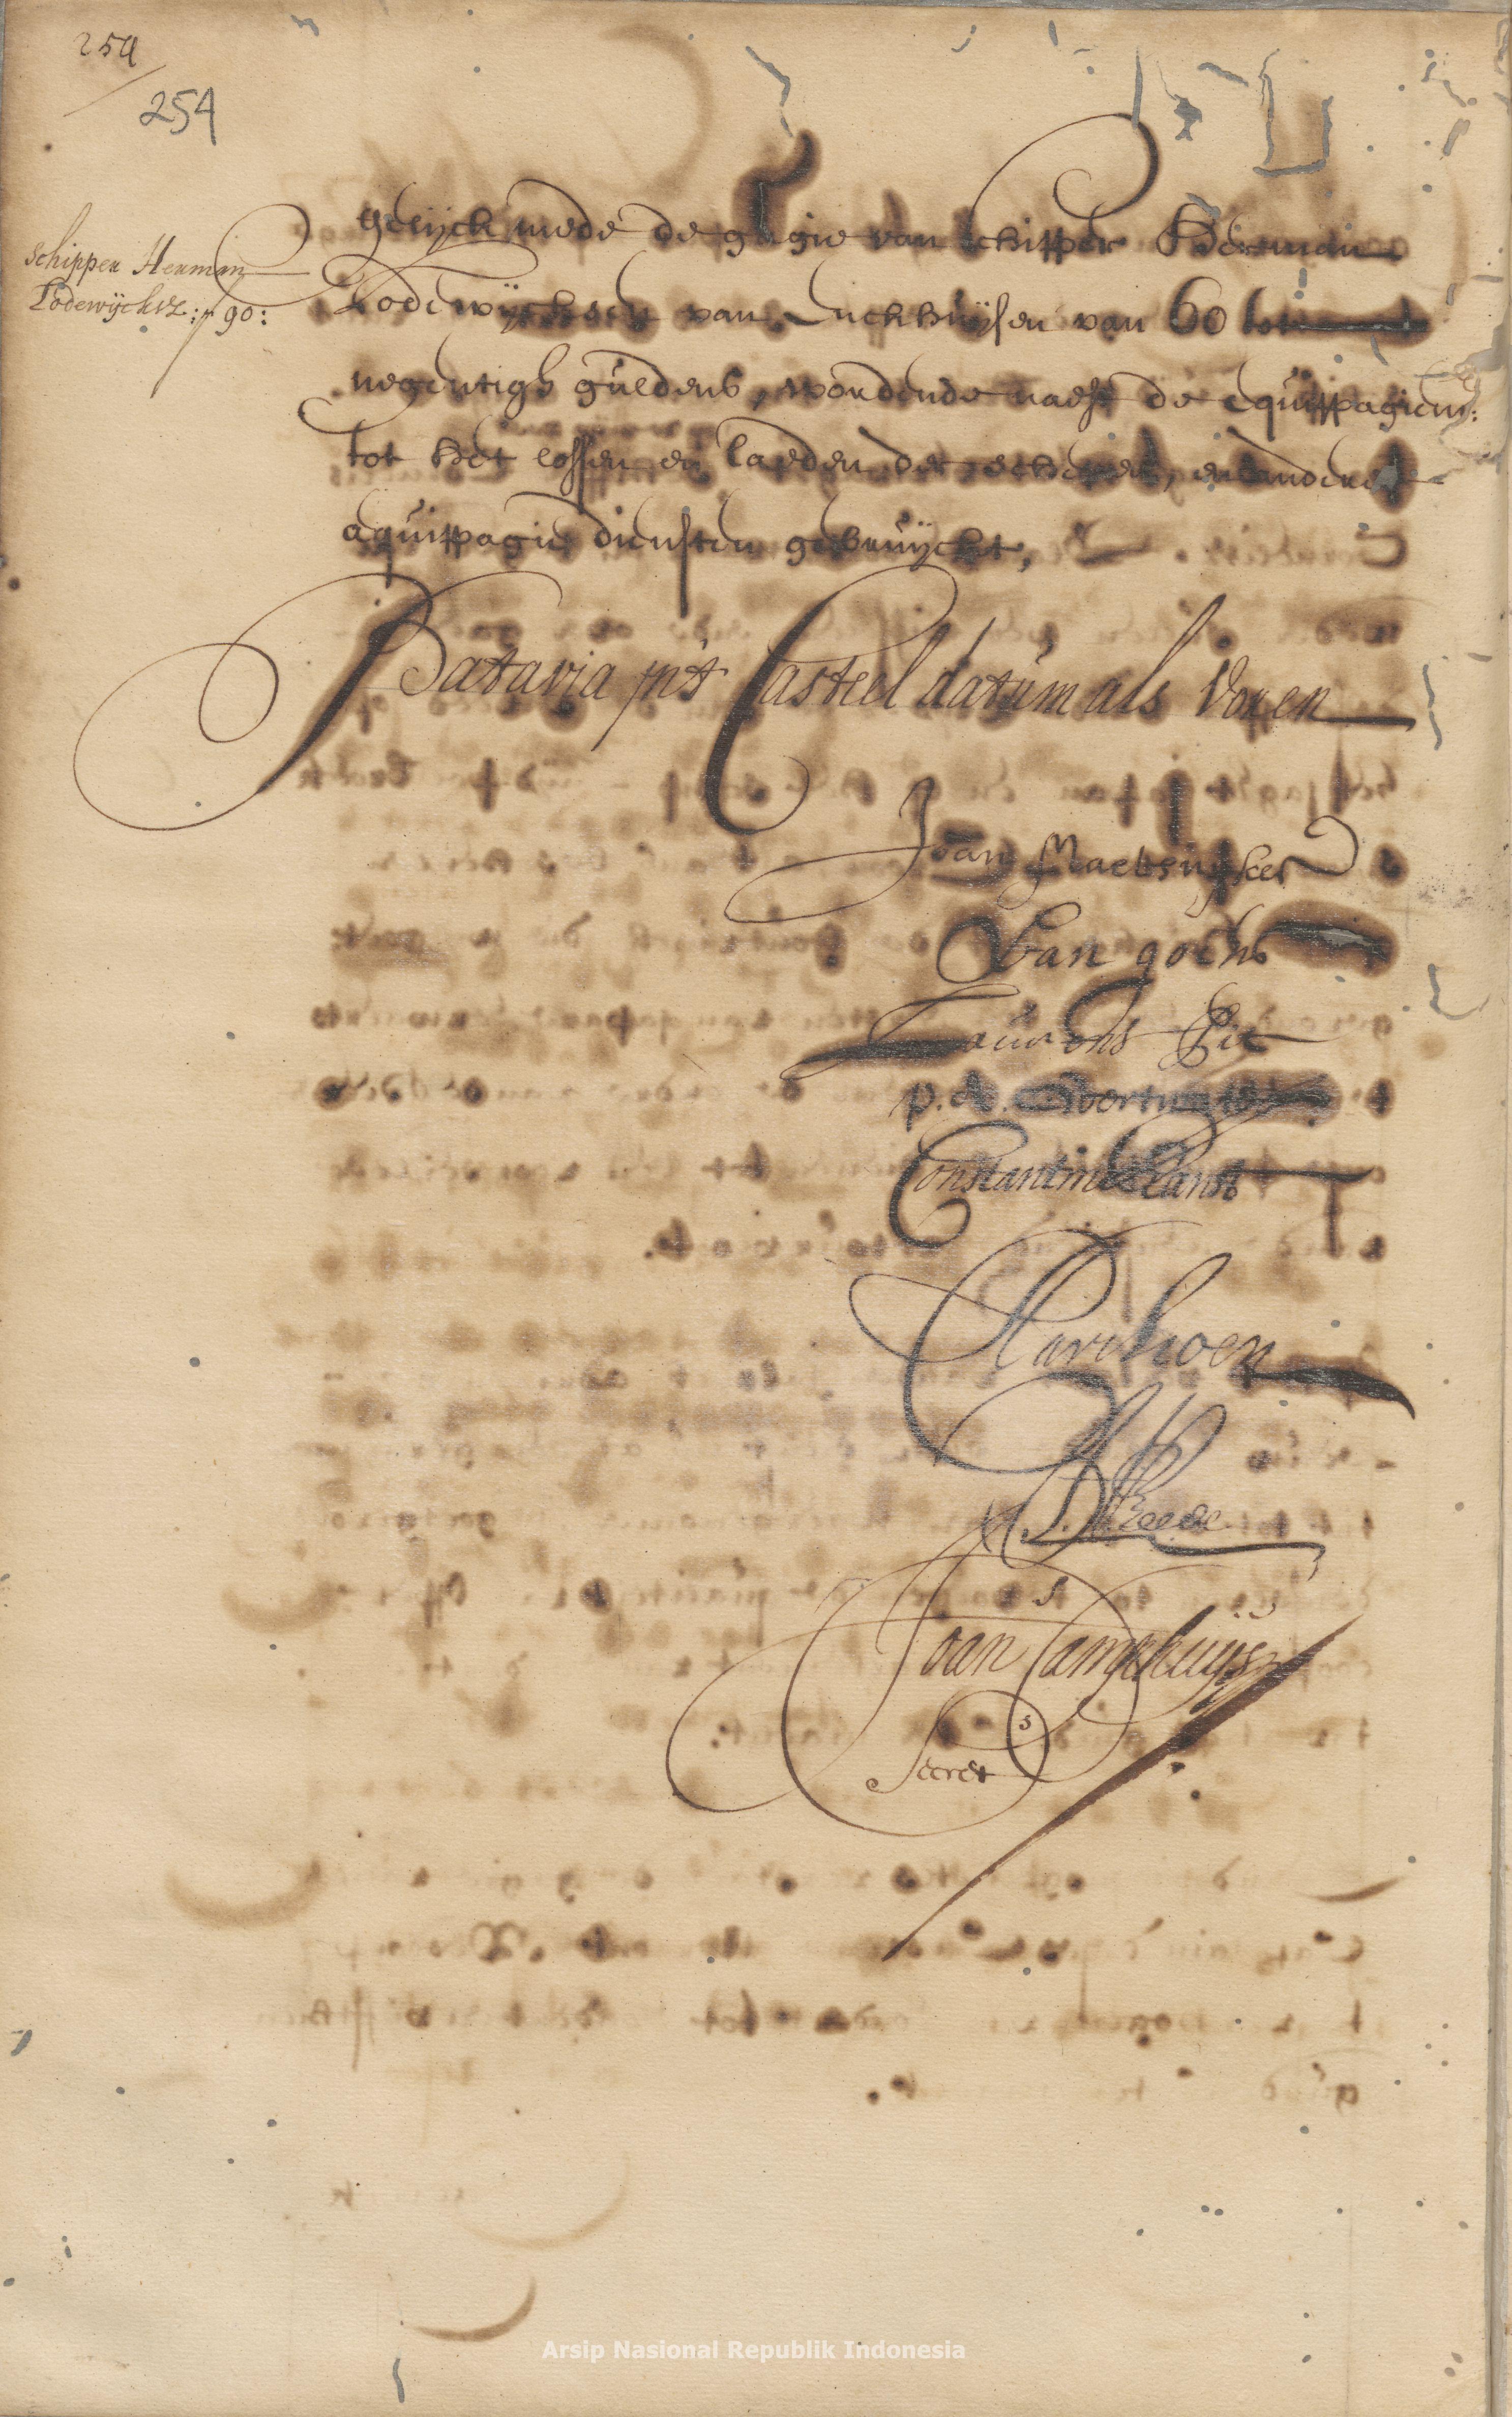 254
254
schipper Herman
Lodewijcksz: f 90:
gelijck mede de gagie van schipper Herman
Lodewijcksen van Enckhuijsen van 60 tot
negentigh guldens, wordende naest de equippagiem:
tot het lossen en laeden der schepen, en andere
equippagie diensten gebruijckt,
Batavia int Casteel datum als Voren
Joan Maetsuyker
Van goens
Laurens Pit
p. A.
Constantin Ranst
D. V. Reede
Joan Camphuijs
Secret
Arsip Nasional Republik Indonesia